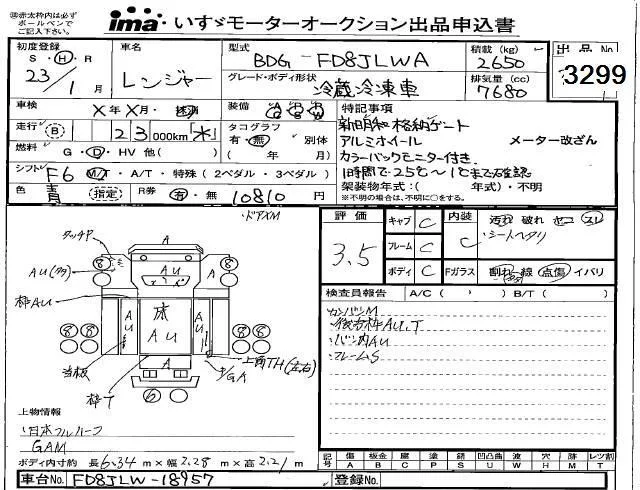 ※赤太枠内は必ず
ボールペンで
ご記入下さい。
ima いすゞモーターオークション出品申込書
初度登録 S・H・R 23/1月
車名 レンジャー
型式 BDG-FD8JLWA
積載(kg) 2650
出品No 3299
グレード・ボディ形状 冷蔵冷凍車
排気量(cc) 7680
車検 X年X月・抹消
装備
特記事項
走行 (B) 23 000km「水」
タコグラフ 有・無 別体 (年 月)
新明和格納ゲート
アルミホイール メーター改ざん
カラーバックモニター付き.
燃料 G・D・HV 他( )
1時間で-25℃~1℃まで確認
シフト F6 M/T・A/T・特殊(2ペダル・3ペダル)
架装物年式:( 年式)・不明
※不明の場合は、不明に○をする。
色 青 (指定) R券 有・無 10810円
・ドアXM
タッチP
AU(多)
枠AU
8 8
A AU A
AU 床AU AU
8 8 8 8
当板
枠T
A
上角TH(左右)
GA
6
評価 3.5
キャブ C
フレーム C
ボディ C
内装 C 汚れ 破れ ヤコ スレ
・シートヘタリ
Fガラス 割れ 線 点傷 イバリ
検査員報告 A/C( ) B/T( )
・カンバンM
・後方枠AU.T
・バン内AU
・フレームS
上物情報
・日本フルハーフ
GAM
ボディ内寸約 長6.34m×幅2.28m×高2.21m
記号 傷A 板金B 腐C 塗P 錆S 凹凸曲U 凹W 穴H 跡M レツ割T
車台No FD8JLW-18957
登録No.